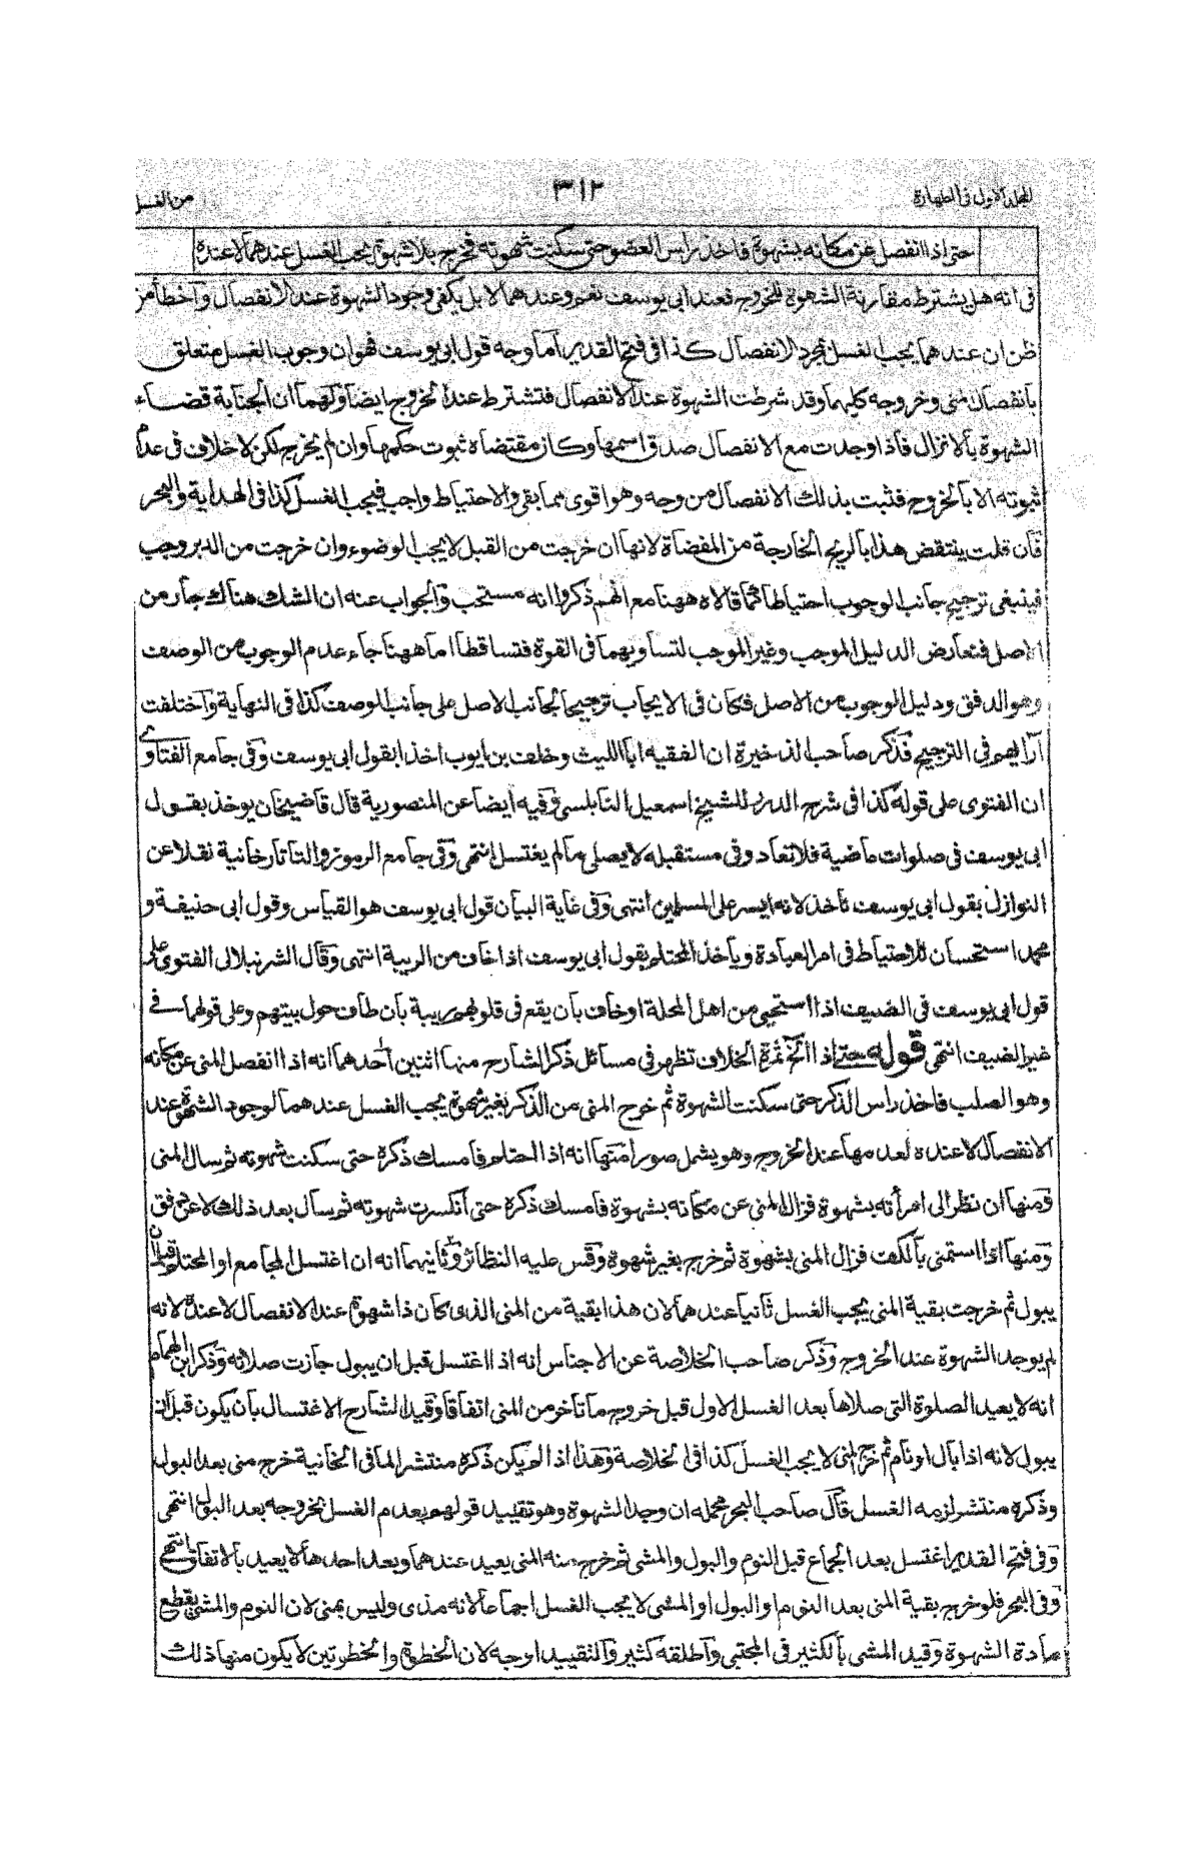 المجلد الاول فى الطهارة ٣١٢ من الغسل
حتى اذا انفصل عن مكانه بشهوة فاخذ براس العضو حتى سكنت شهوته فخرج بلا شهوة يجب الغسل عندهما لا عنده
فى انه هل يشترط مقارنة الشهوة للخروج فعند ابى يوسف نعم وعندهما لا بل يكفى وجود الشهوة عند الانفصال واخطأ من
ظن ان عندهما يجب الغسل بمجرد الانفصال كذا فى فتح القدير اما وجه قول ابى يوسف فهو ان وجوب الغسل متعلق
بانفصال منى وخروجه كليهما وقد شرطت الشهوة عند الانفصال فتشترط عند الخروج ايضا ولهما ان الجنابة قضاء
الشهوة بالانزال فاذا وجدت مع الانفصال صدق اسمها وكان مقتضاه ثبوت حكمها وان لم يخرج لكن لا خلاف فى عدم
ثبوته الا بالخروج فثبت بذلك الانفصال من وجه وهو اقوى مما بقى والاحتياط واجب فيجب الغسل كذا فى الهداية والبحر
فان قلت ينتقض هذا بالريح الخارجة من المفضاة لانها ان خرجت من القبل لا يجب الوضوء وان خرجت من الدبر وجب
فينبغى ترجيح جانب الوجوب احتياطا كما قالاه ههنا مع انهم ذكروا انه مستحب والجواب عنه ان الشك هناك جاء من
الاصل فتعارض الدليل الموجب وغير الموجب لتساويهما فى القوة فتساقطا اما ههنا جاء عدم الوجوب من الوصف
وهو الدفق ودليل الوجوب من الاصل فكان فى الايجاب ترجيحا لجانب الاصل على جانب الوصف كذا فى النهاية واختلفت
آرايهم فى الترجيح فذكر صاحب الذخيرة ان الفقيه ابا الليث وخلف بن ايوب اخذا بقول ابى يوسف وفى جامع الفتاوى
ان الفتوى على قوله كذا فى شرح الدرر للشيخ اسمعيل النابلسى وفيه ايضا عن المنصورية قال قاضيخان يوخذ بقول
ابى يوسف فى صلوات ماضية فلا تعاد وفى مستقبله لا يصلى مالم يغتسل انتهى وفى جامع الرموز والتاتارخانية نقلا عن
النوازل بقول ابى يوسف نأخذ لانه ايسر على المسلمين انتهى وفى غاية البيان قول ابى يوسف هو القياس وقول ابى حنيفة و
محمد استحسان للاحتياط فى امر العبادة وياخذ المحتلم بقول ابى يوسف اذا خاف من الريبة انتهى وقال الشرنبلالى الفتوى على
قول ابى يوسف فى الضيف اذا استحيى من اهل المحلة او خاف بان يقع فى قلوبهم ريبة بان طاف حول بيتهم وعلى قولهما فى
غير الضيف انتهى قوله حتى اذا الخ ثمرة الخلاف تظهر فى مسائل ذكر الشارح منها اثنين احدهما انه اذا انفصل المنى عن مكانه
وهو الصلب فاخذ راس الذكر حتى سكنت الشهوة ثم خرج المنى من الذكر بغير شهوة يجب الغسل عندهما لوجود الشهوة عند
الانفصال لا عنده لعدمها عند الخروج وهو يشمل صورا منها انه اذا احتلم فامسك ذكره حتى سكنت شهوته ثم سال المنى
ومنها ان نظر الى امرأته بشهوة فزال المنى عن مكانه بشهوة فامسك ذكره حتى انكسرت شهوته ثم سال بعد ذلك لا عن دفق
ومنها اذا استمنى بالكف فزال المنى بشهوة ثم خرج بغير شهوة وقس عليه النظائر وثانيهما انه ان اغتسل المجامع او المحتلم قبل ان
يبول ثم خرجت بقية المنى يجب الغسل ثانيا عندهما لان هذا بقية من المنى الذى كان ذا شهوة عند الانفصال لا عنده لانه
لم يوجد الشهوة عند الخروج وذكر صاحب الخلاصة عن الاجناس انه اذا اغتسل قبل ان يبول جازت صلاته وذكر ابن الهمام
انه لا يعيد الصلوة التى صلاها بعد الغسل الاول قبل خروج ما تأخر من المنى اتفاقا وقيد الشارح الاغتسال بان يكون قبل ان
يبول لانه اذا بال او نام ثم خرج المنى لا يجب الغسل كذا فى الخلاصة وهذا اذا لم يكن ذكره منتشرا لما فى الخانية خرج منى بعد البول
وذكره منتشر لزمه الغسل قال صاحب البحر محمله ان وجد الشهوة وهو تقييد قولهم بعدم الغسل بخروجه بعد البول انتهى
وفى فتح القدير اغتسل بعد الجماع قبل النوم والبول والمشى ثم خرج منه المنى يعيد عندهما وبعد احدها لا يعيد بالاتفاق انتهى
وفى البحر فلو خرج بقية المنى بعد النوم او البول او المشى لا يجب الغسل اجماعا لانه مذى وليس بمنى لان النوم والمشى يقطع
مادة الشهوة وقيد المشى بالكثير فى المجتبى واطلقه كثير والتقييد اوجه لان الخطوة والخطوتين لا يكون منها ذلك